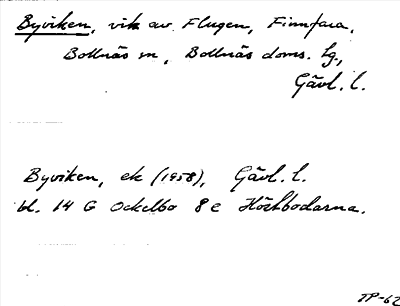 Byviken, vik av Flugen, Finnfara,
Bollnäs sn, Bollnäs doms. hg.,
Gävl. l.
Byviken, ek (1958), Gävl. l.
bl. 14 G Ockelbo 8 e Höstbodarna.
JP-62